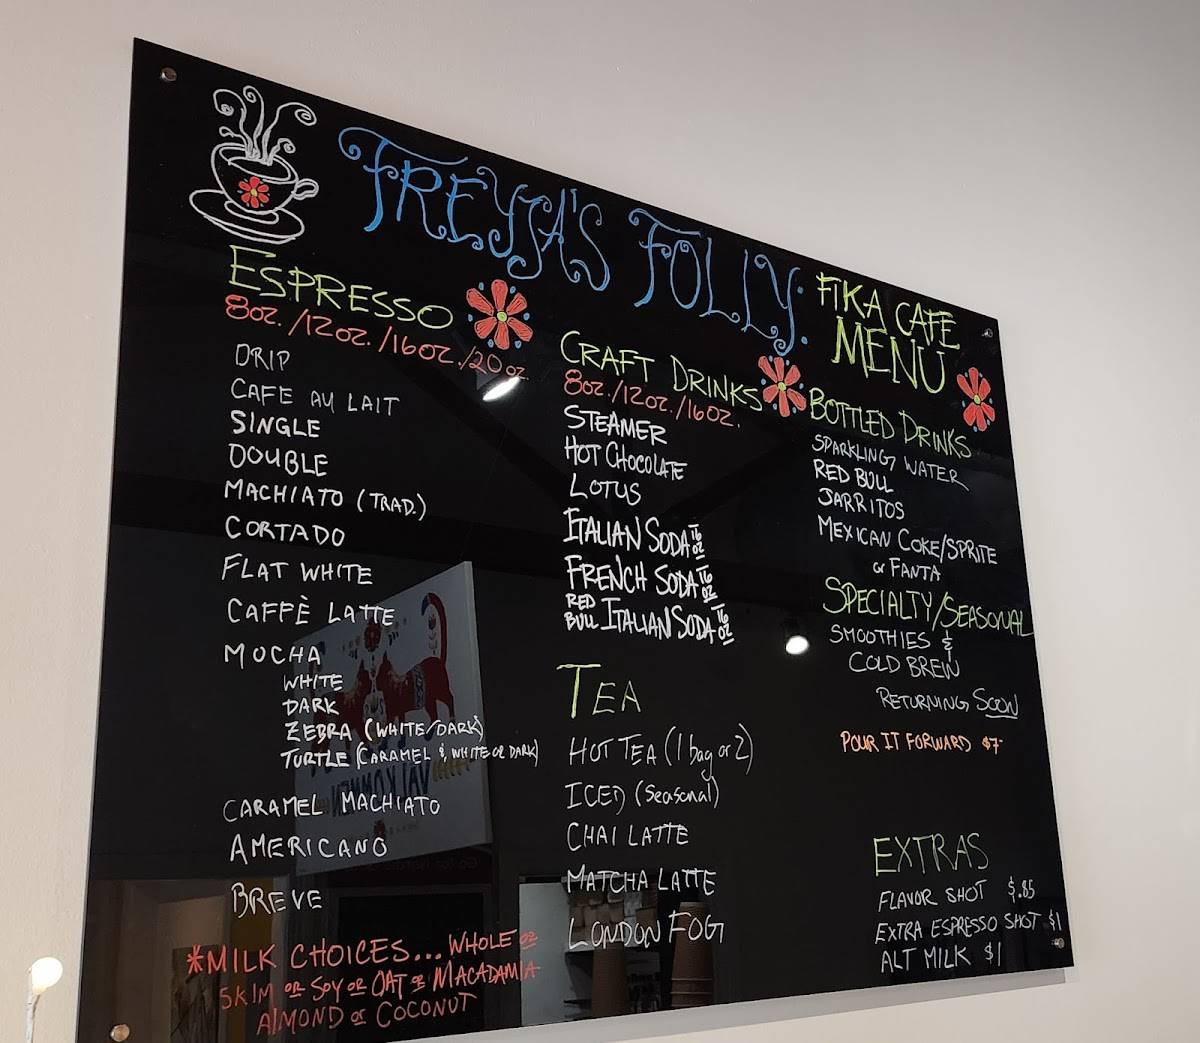 FREYJA'S FOLLY:
FIKA CAFE
MENU
ESPRESSO
8oz./12oz./16oz./20oz.
DRIP
CAFE AU LAIT
SINGLE
DOUBLE
MACHIATO (TRAD.)
CORTADO
FLAT WHITE
CAFFÈ LATTE
MOCHA
WHITE
DARK
ZEBRA (WHITE/DARK)
TURTLE (CARAMEL & WHITE OR DARK)
CARAMEL MACHIATO
AMERICANO
BREVE
*MILK CHOICES... WHOLE OR
SKIM OR SOY OR OAT OR MACADAMIA
ALMOND OR COCONUT
CRAFT DRINKS
8oz./12oz./16oz.
STEAMER
HOT CHOCOLATE
LOTUS
ITALIAN SODA 16 oz
FRENCH SODA 16 oz
RED BULL ITALIAN SODA 16 oz
TEA
HOT TEA (1 bag or 2)
ICED (Seasonal)
CHAI LATTE
MATCHA LATTE
LONDON FOG
BOTTLED DRINKS
SPARKLING WATER
RED BULL
JARRITOS
MEXICAN COKE/SPRITE
or FANTA
SPECIALTY/SEASONAL
SMOOTHIES &
COLD BREW
RETURNING SOON
POUR IT FORWARD $7-
EXTRAS
FLAVOR SHOT $.85
EXTRA ESPRESSO SHOT $1
ALT MILK $1